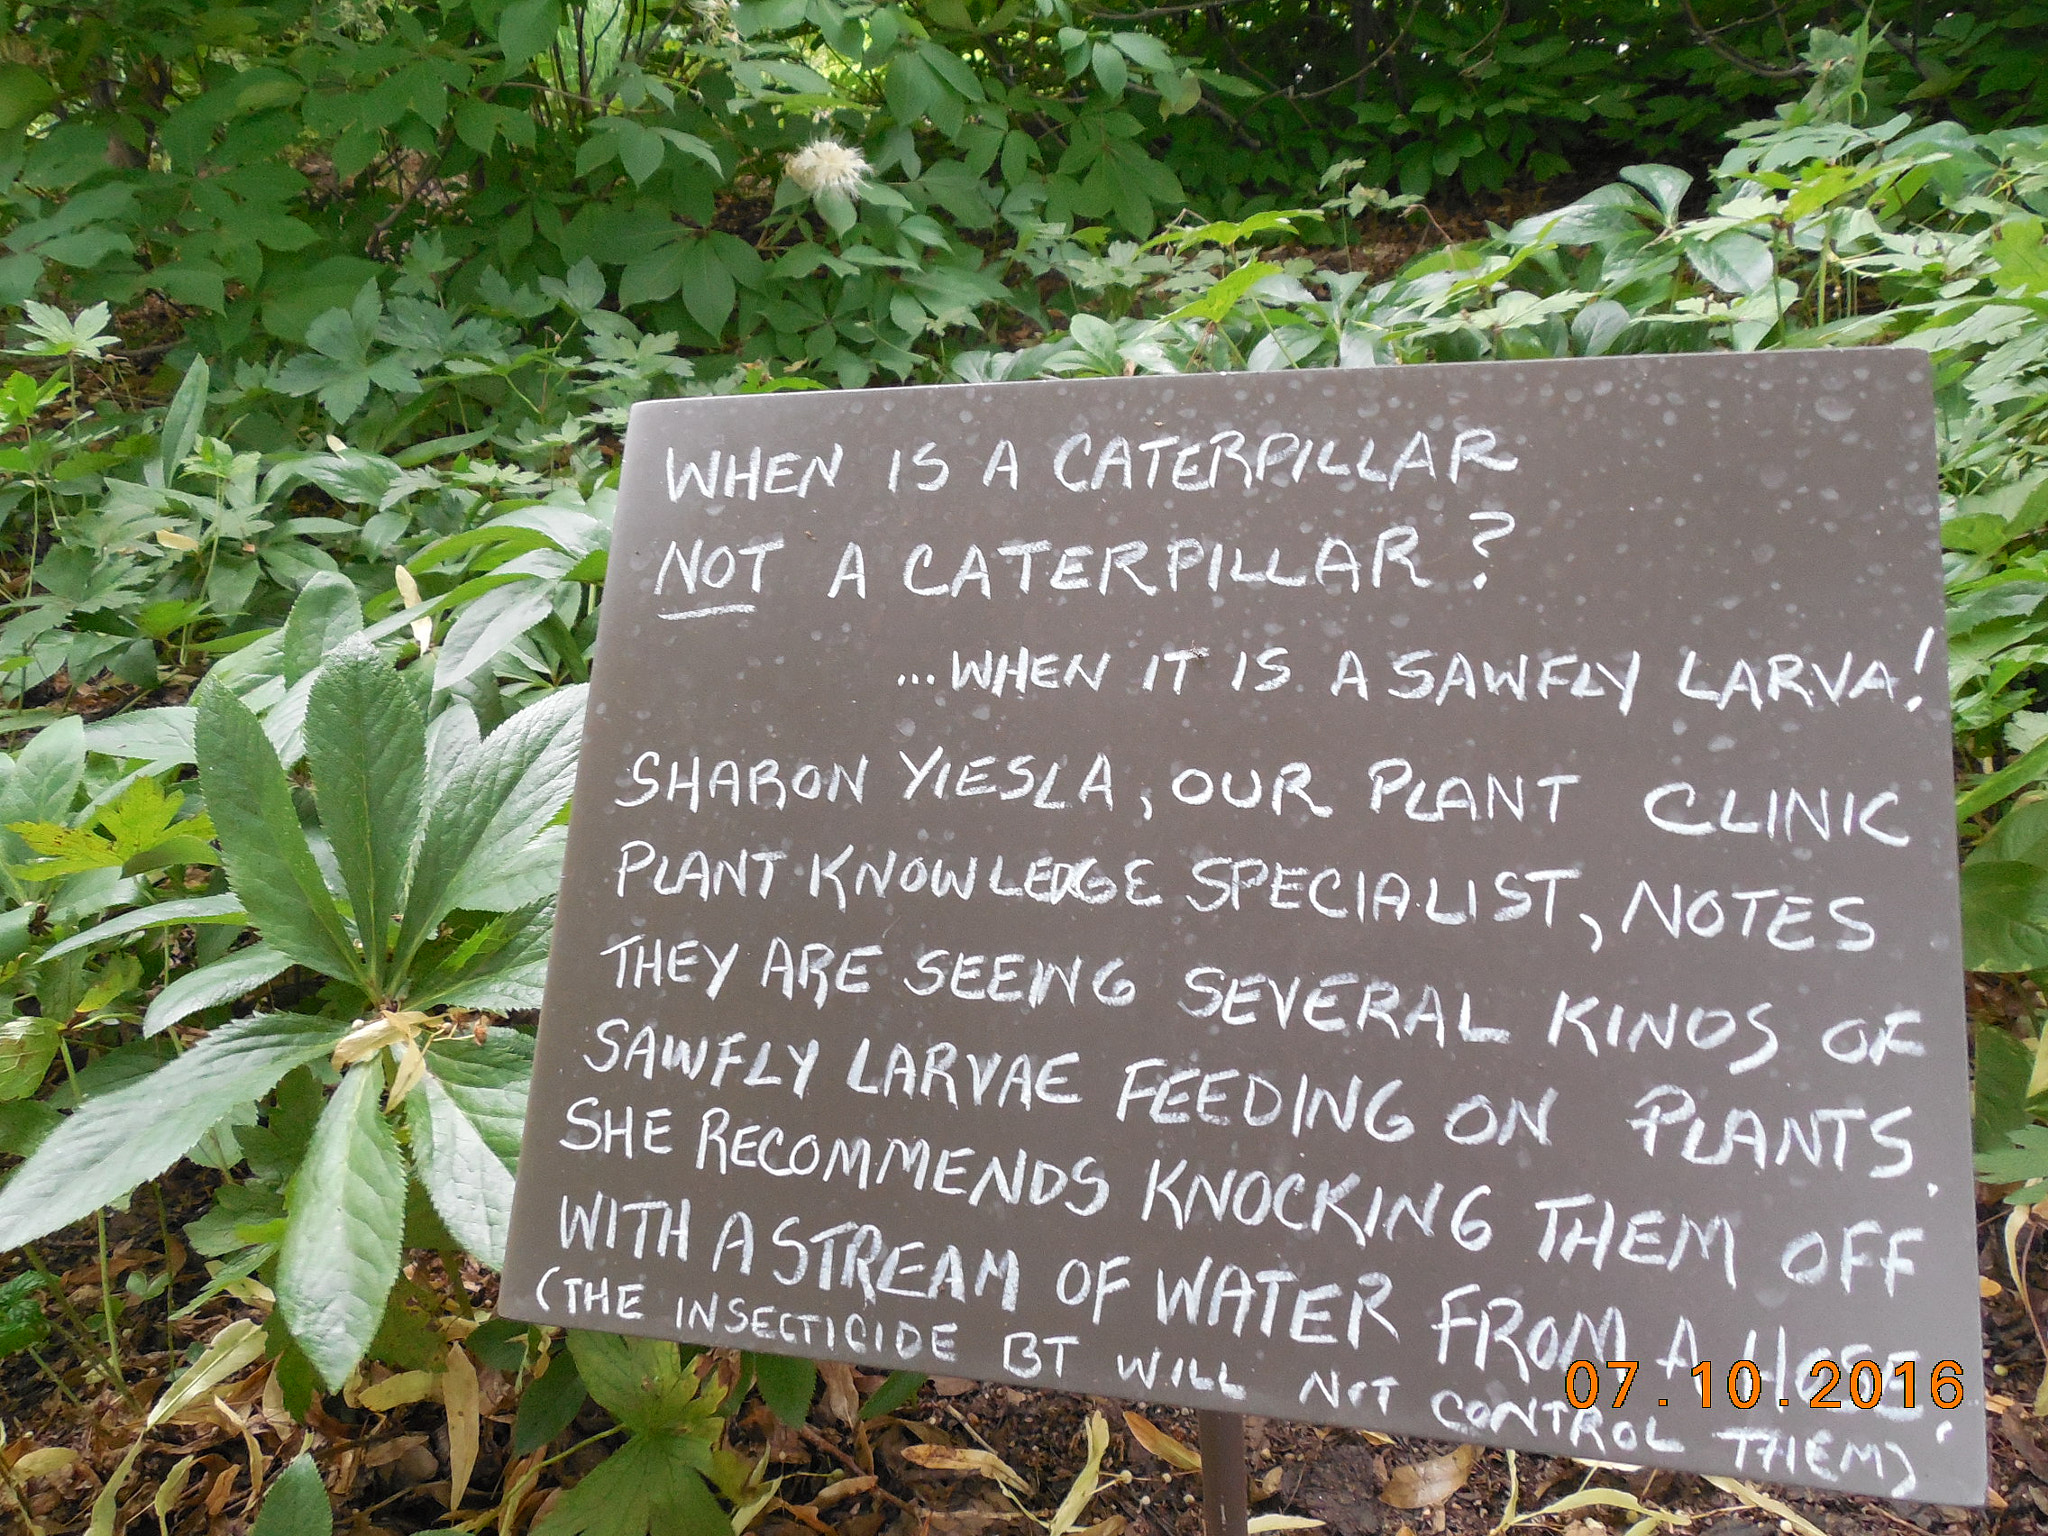 WHEN IS A CATERPILLAR
NOT A CATERPILLAR?
...WHEN IT IS A SAWFLY LARVA!
SHARON YIESLA, OUR PLANT CLINIC
PLANT KNOWLEDGE SPECIALIST, NOTES
THEY ARE SEEING SEVERAL KINDS OF
SAWFLY LARVAE FEEDING ON PLANTS.
SHE RECOMMENDS KNOCKING THEM OFF
WITH A STREAM OF WATER FROM A HOSE.
(THE INSECTICIDE BT WILL NOT CONTROL THEM)
07.10.2016